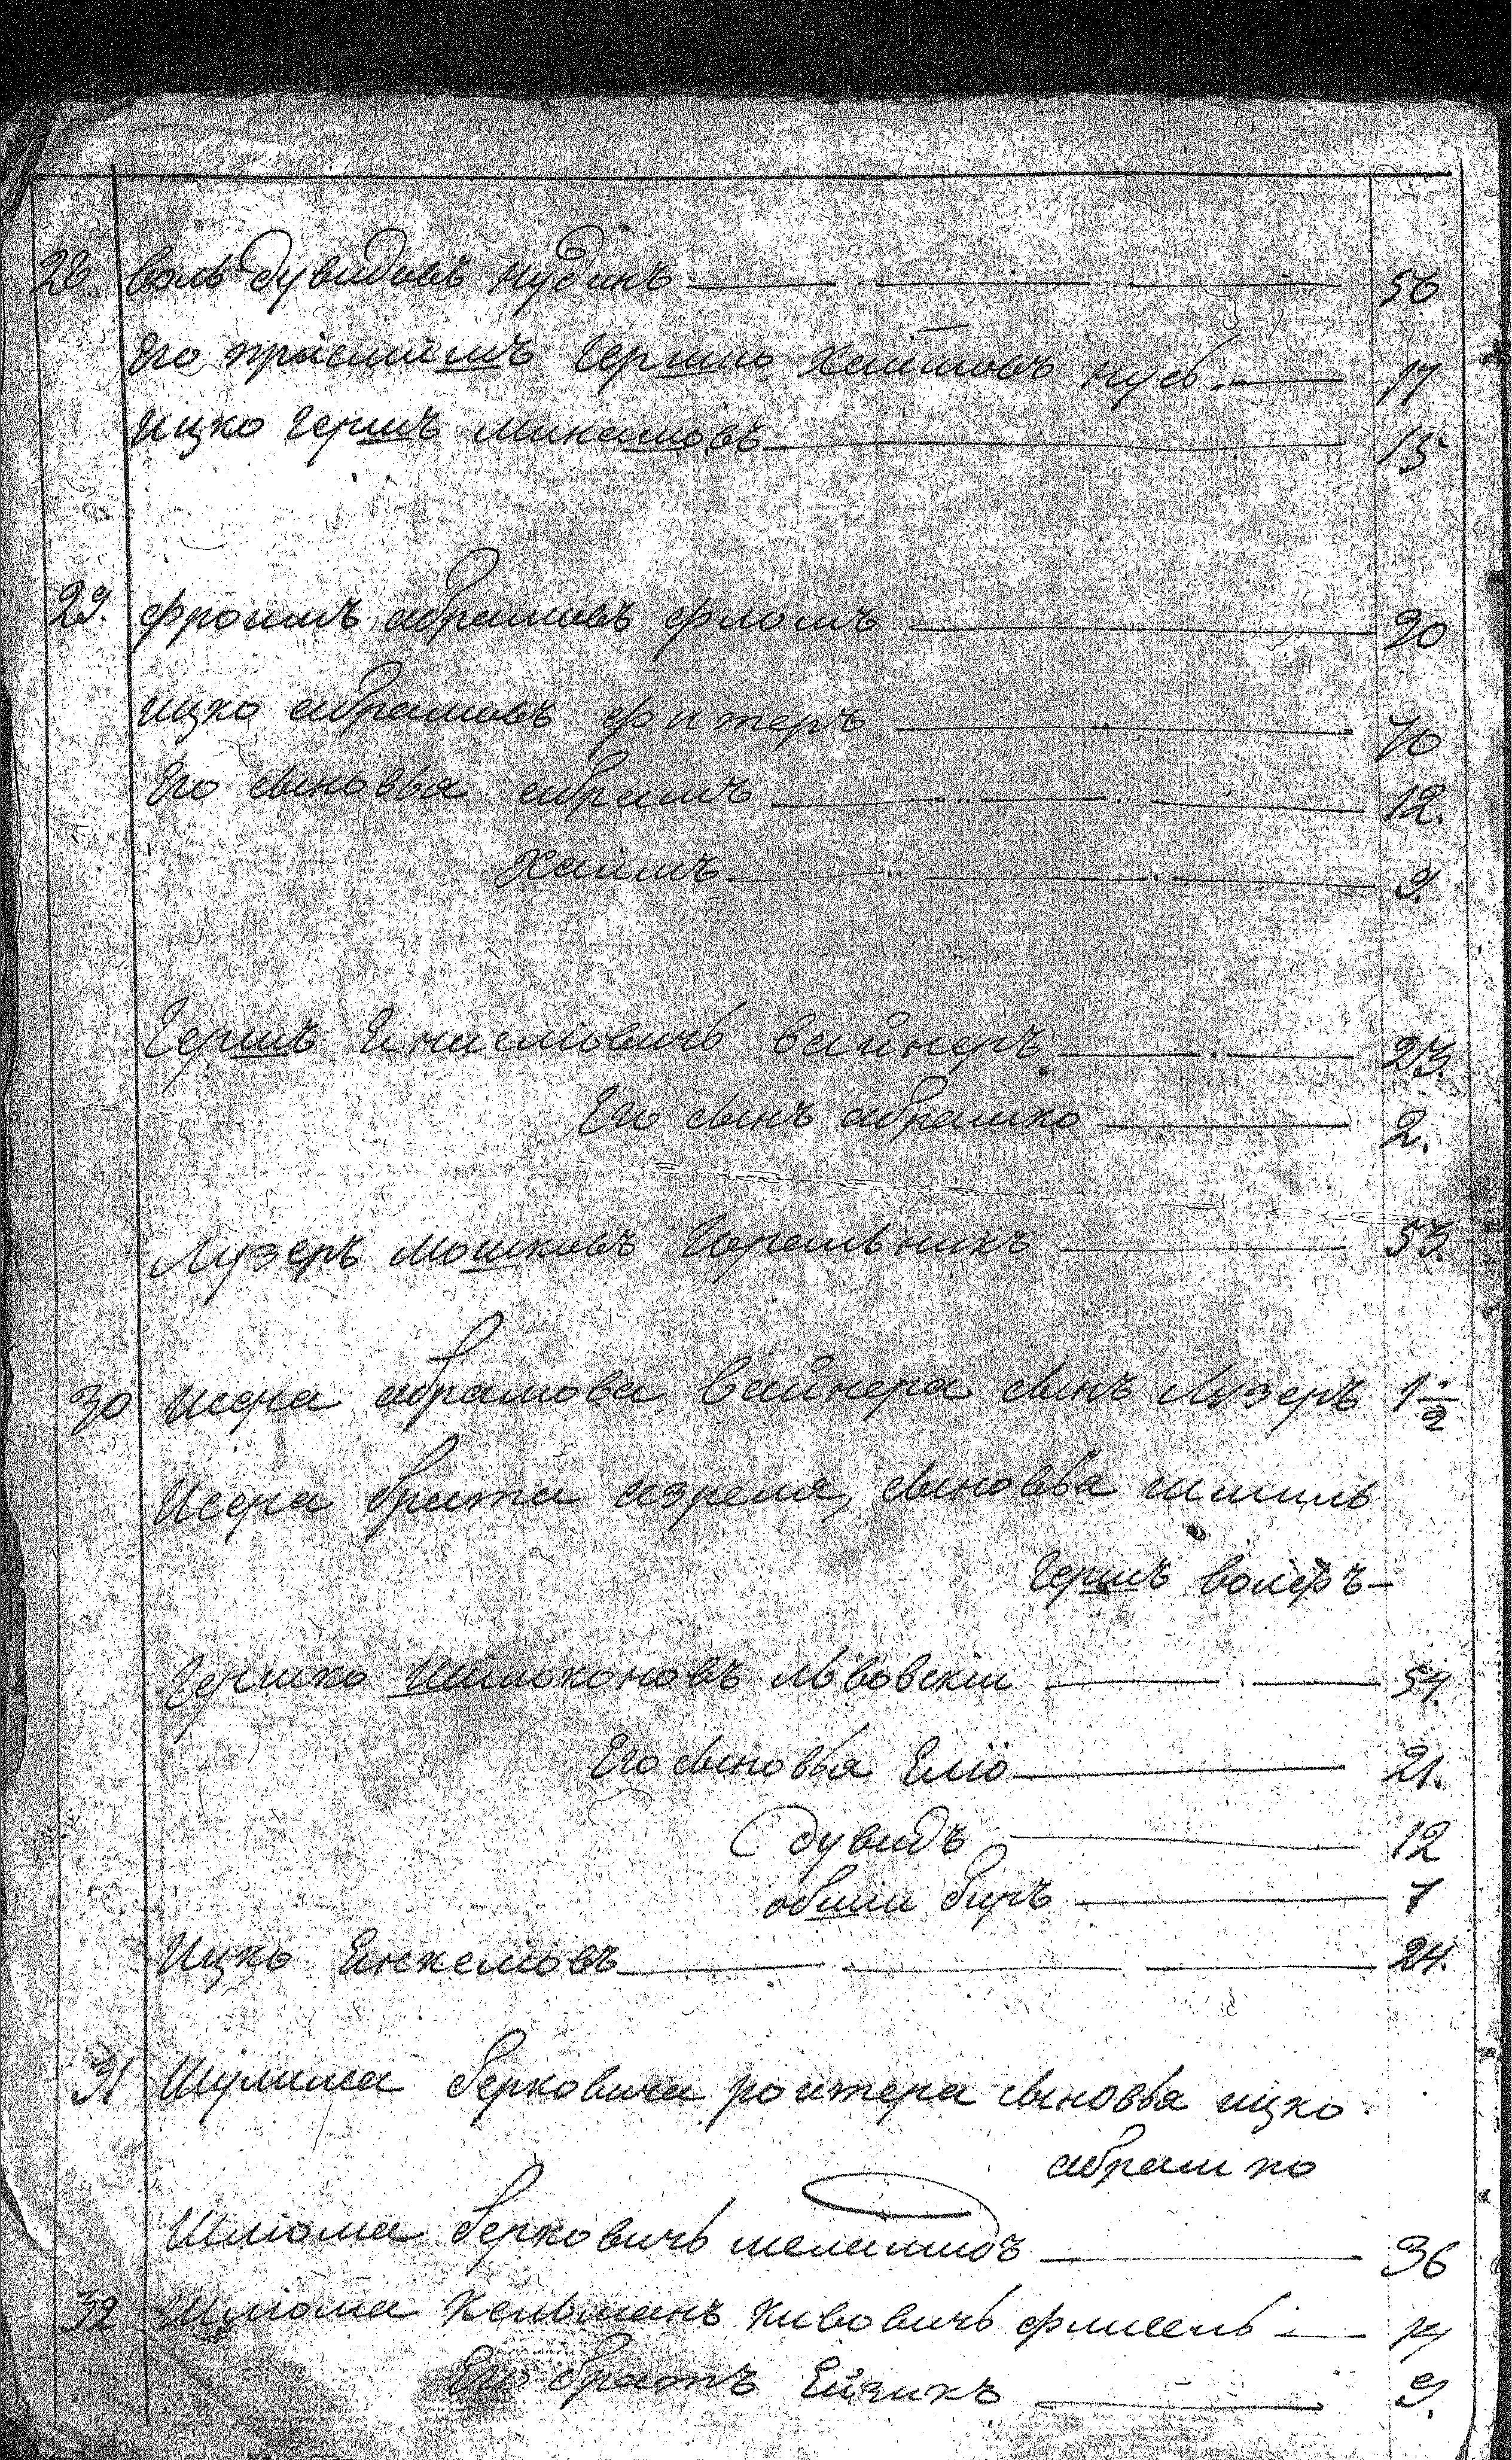 28. воль дувидовъ нудинъ 56
Его приемишъ Гершко Хаимовъ нусь 17
ицко Гершъ 15
29. Фроимъ абрамовъ фломъ 20
ицко абрамовъ фитеръ 40
Его сыновья абрамъ 12.
Хаимъ 9.
Гершъ вайнеръ 23.
Его сынъ абрашко 2.
Лузеръ мошковъ Горальникъ 53.
30 иосра абрамова вайнера сынъ Лузеръ 1 1/2
Иосра брата азреля, сыновья шмиль
Гершъ волефъ
Гершко львовскiи 51.
Его сыновья Елiо 21.
дувидъ 12
овшiи биръ 7
Ицко Енкелiовъ 24.
31 Шулима берковича роитера сыновья ицко
абрашко
Шлiома берковичь 36
32 Шлiома Кельманъ кивовичь 14
Его братъ Ейзикъ 9.